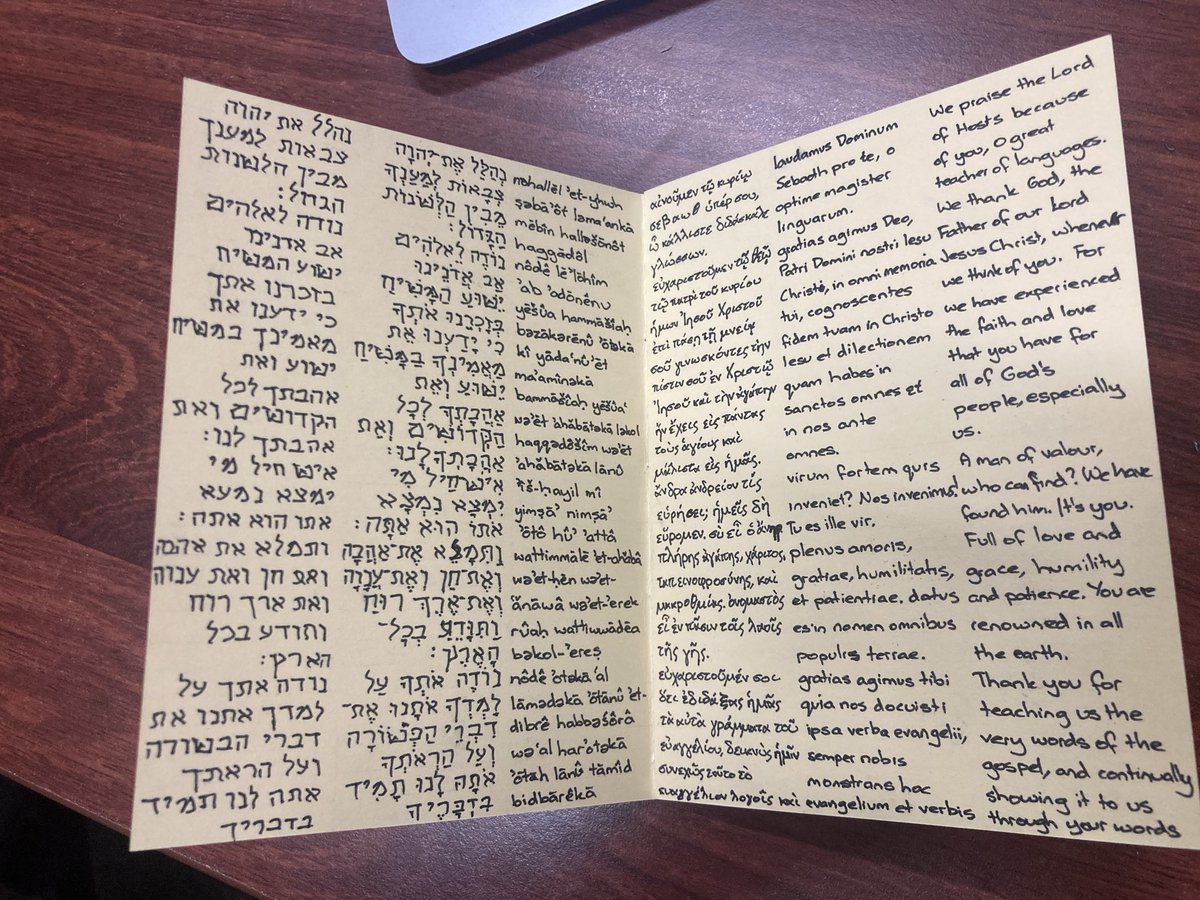 נהלל את יהוה
צבאות למענך
מבין הלשנות
הגדול:
נודה לאלהים
אב אדנינו
ישוע המשיח
בזכרנו אתך
כי ידענו את
מאמינך במשיח
ישוע ואת
אהבתך לכל
הקדושים ואת
אהבתך לנו:
איש חיל מי
ימצא נמצא
אתו הוא אתה:
ותמלא את אהבה
ואת חן ואת ענוה
ואת ארך רוח
וחודע בכל
הארץ:
נודה אתך על
למדך אתנו את
דברי הבשורה
ועל הראתך
אתה לנו תמיד
בדבריך
נְהַלֵּל אֶת־יְהוָה
צְבָאוֹת לְמַעַנְךָ
מֵבִין הַלְּשֹׁנוֹת
הַגָּדוֹל:
נוֹדֶה לֵאלֹהִים
אַב אֲדֹנֵינוּ
יֵשׁוּעַ הַמָּשִׁיחַ
בְּזָכְרֵנוּ אֹתְךָ
כִּי יָדַעְנוּ אֵת
מַאֲמִינְךָ בַּמָּשִׁיחַ
יֵשׁוּעַ וְאֵת
אַהֲבָתְךָ לְכָל
הַקְּדוֹשִׁים וְאֵת
אַהֲבָתְךָ לָנוּ:
אִישׁ־חַיִל מִי
יִמְצָא נִמְצָא
אֹתוֹ הוּא אַתָּה:
וַתִּמָּלֵא אֶת־אַהֲבָה
וְאֶת־חֵן וְאֶת־עֲנָוָה
וְאֶת־אֶרֶךְ רוּחַ
וַתִּוָּדַע בְּכָל־
הָאָרֶץ:
נוֹדֶה אֹתְךָ עַל
לַמֶּדְךָ אֹתָנוּ אֶת־
דִּבְרֵי הַבְּשׂוֹרָה
וְעַל הַרְאֹתְךָ
אֹתָהּ לָנוּ תָּמִיד
בִּדְבָרֶיךָ
nəhallēl ʾet-yhwh
ṣəbāʾôt ləmaʿankā
mēbîn halləšōnôt
haggādôl
nôdê lēʾlōhîm
ʾab ʾădōnēnu
yēšûaʿ hammāšîaḥ
bəzākərēnû ʾōtəkā
kî yādaʿnûʾēt
maʾamînəkā
bammāšîaḥ yēšûaʿ
wəʾēt ʾahăbātəkā ləkol
haqqədôšîm wəʾēt
ʾahăbātəkā lānû
ʾîš-ḥayil mî
yimṣāʾ nimṣāʾ
ʾōtô hûʾ ʾattâ
wattimmālēʾ ʾet-ʾahăbâ
wəʾet-ḥēn wəʾet-
ʿănāwâ wəʾet-ʾerek
rûaḥ wattiwwādēa
bəkol-ʾereṣ
nôdê ʾōtəkā ʿal
lāmədəkā ʾōtānû ʾet-
dibrê habbəśôrâ
wəʿal harʾōtəkā
ʾōtah lānû tāmîd
bidbārêkā
αἰνοῦμεν τῷ κυρίῳ
σεβαωθ ὑπέρ σου,
ὦ κάλλιστε διδάσκαλε
γλώσσων.
εὐχαριστοῦμεν τῷ θεῷ
τῷ πατρὶ τοῦ κυρίου
ἡμων Ἰησοῦ Χριστοῦ
ἐπὶ πάσῃ τῇ μνείᾳ
σοῦ γινωσκόντες τὴν
πίστιν σοῦ ἐν Χριστῷ
Ἰησοῦ καὶ τὴν ἀγάπην
ἣν ἔχεις εἰς πάντας
τοὺς ἁγίους καὶ
μάλιστα εἰς ἡμᾶς.
ἄνδρα ἀνδρεῖον τίς
εὑρήσει; ἡμεῖς δὴ
εὕρομεν. σὺ εἶ ὁ ἀνηρ
πλήρης ἀγάπης, χάριτος,
ταπεινοφροσύνης, καὶ
μακροθμίας. ὀνομαστὸς
εἶ ἐν πᾶσιν ταῖς λαοῖς
τῆς γῆς.
εὐχαριστοῦμέν σοι
ὅτι ἐδιδάξας ἡμᾶς
τὰ αὐτὰ γράμματα τοῦ
εὐαγγελίου, δεικνὺς ἡμῖν
συνεχῶς τοῦτο τὸ
εὐαγγέλιον λογοῖς καὶ
laudamus Dominum
Sebaoth pro te, o
optime magister
linguarum.
gratias agimus Deo,
Patri Domini nostri Iesu
Christi, in omni memoria
tui, cognoscentes
fidem tuam in Christo
Iesu et dilectionem
quam habes in
sanctos omnes et
in nos ante
omnes.
virum fortem quis
inveniet? Nos invenimus!
Tu es ille vir.
plenus amoris,
gratiae, humilitatis,
et patientiae. datus
es in nomen omnibus
populis terrae.
gratias agimus tibi
quia nos docuisti
ipsa verba evangelii,
semper nobis
monstrans hoc
evangelium et verbis
We praise the Lord
of Hosts because
of you, o great
teacher of languages.
We thank God, the
Father of our Lord
Jesus Christ, whenever
we think of you. For
we have experienced
the faith and love
that you have for
all of God's
people, especially
us.
A man of valour,
who can find? We have
found him. It's you.
Full of love and
grace, humility
and patience. You are
renowned in all
the earth.
Thank you for
teaching us the
very words of the
gospel, and continually
showing it to us
through your words